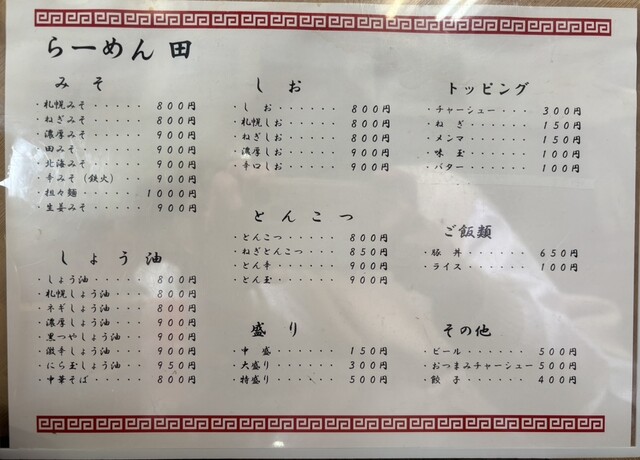 らーめん 田
みそ
・札幌みそ・・・・・800円
・ねぎみそ・・・・・800円
・濃厚みそ・・・・・900円
・田みそ・・・・・・900円
・北海みそ・・・・・900円
・辛みそ(鉄火)・・900円
・担々麺・・・・・1000円
・生姜みそ・・・・・900円
しょう油
・しょう油・・・・・800円
・札幌しょう油・・・800円
・ネギしょう油・・・800円
・濃厚しょう油・・・900円
・黒つやしょう油・・900円
・激辛しょう油・・・900円
・にら玉しょう油・・950円
・中華そば・・・・・800円
しお
・しお・・・・・・800円
・札幌しお・・・・800円
・ねぎしお・・・・800円
・濃厚しお・・・・900円
・辛口しお・・・・900円
とんこつ
・とんこつ・・・・800円
・ねぎとんこつ・・850円
・とん辛・・・・・900円
・とん玉・・・・・900円
盛り
・中盛・・・・・・150円
・大盛り・・・・・300円
・特盛り・・・・・500円
トッピング
・チャーシュー・・・300円
・ねぎ・・・・・・・150円
・メンマ・・・・・・150円
・味玉・・・・・・・100円
・バター・・・・・・100円
ご飯類
・豚丼・・・・・・・650円
・ライス・・・・・・100円
その他
・ビール・・・・・・500円
・おつまみチャーシュー500円
・餃子・・・・・・・400円